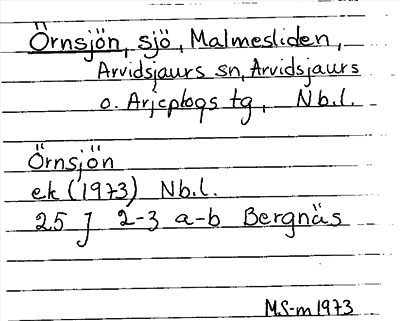 Örnsjön, sjö, Malmesliden,
Arvidsjaurs sn, Arvidsjaurs
o. Arjeplogs tg, Nb.l.
Örnsjön
ek (1973) Nb.l.
25 J 2-3 a-b Bergnäs
MS-m 1973